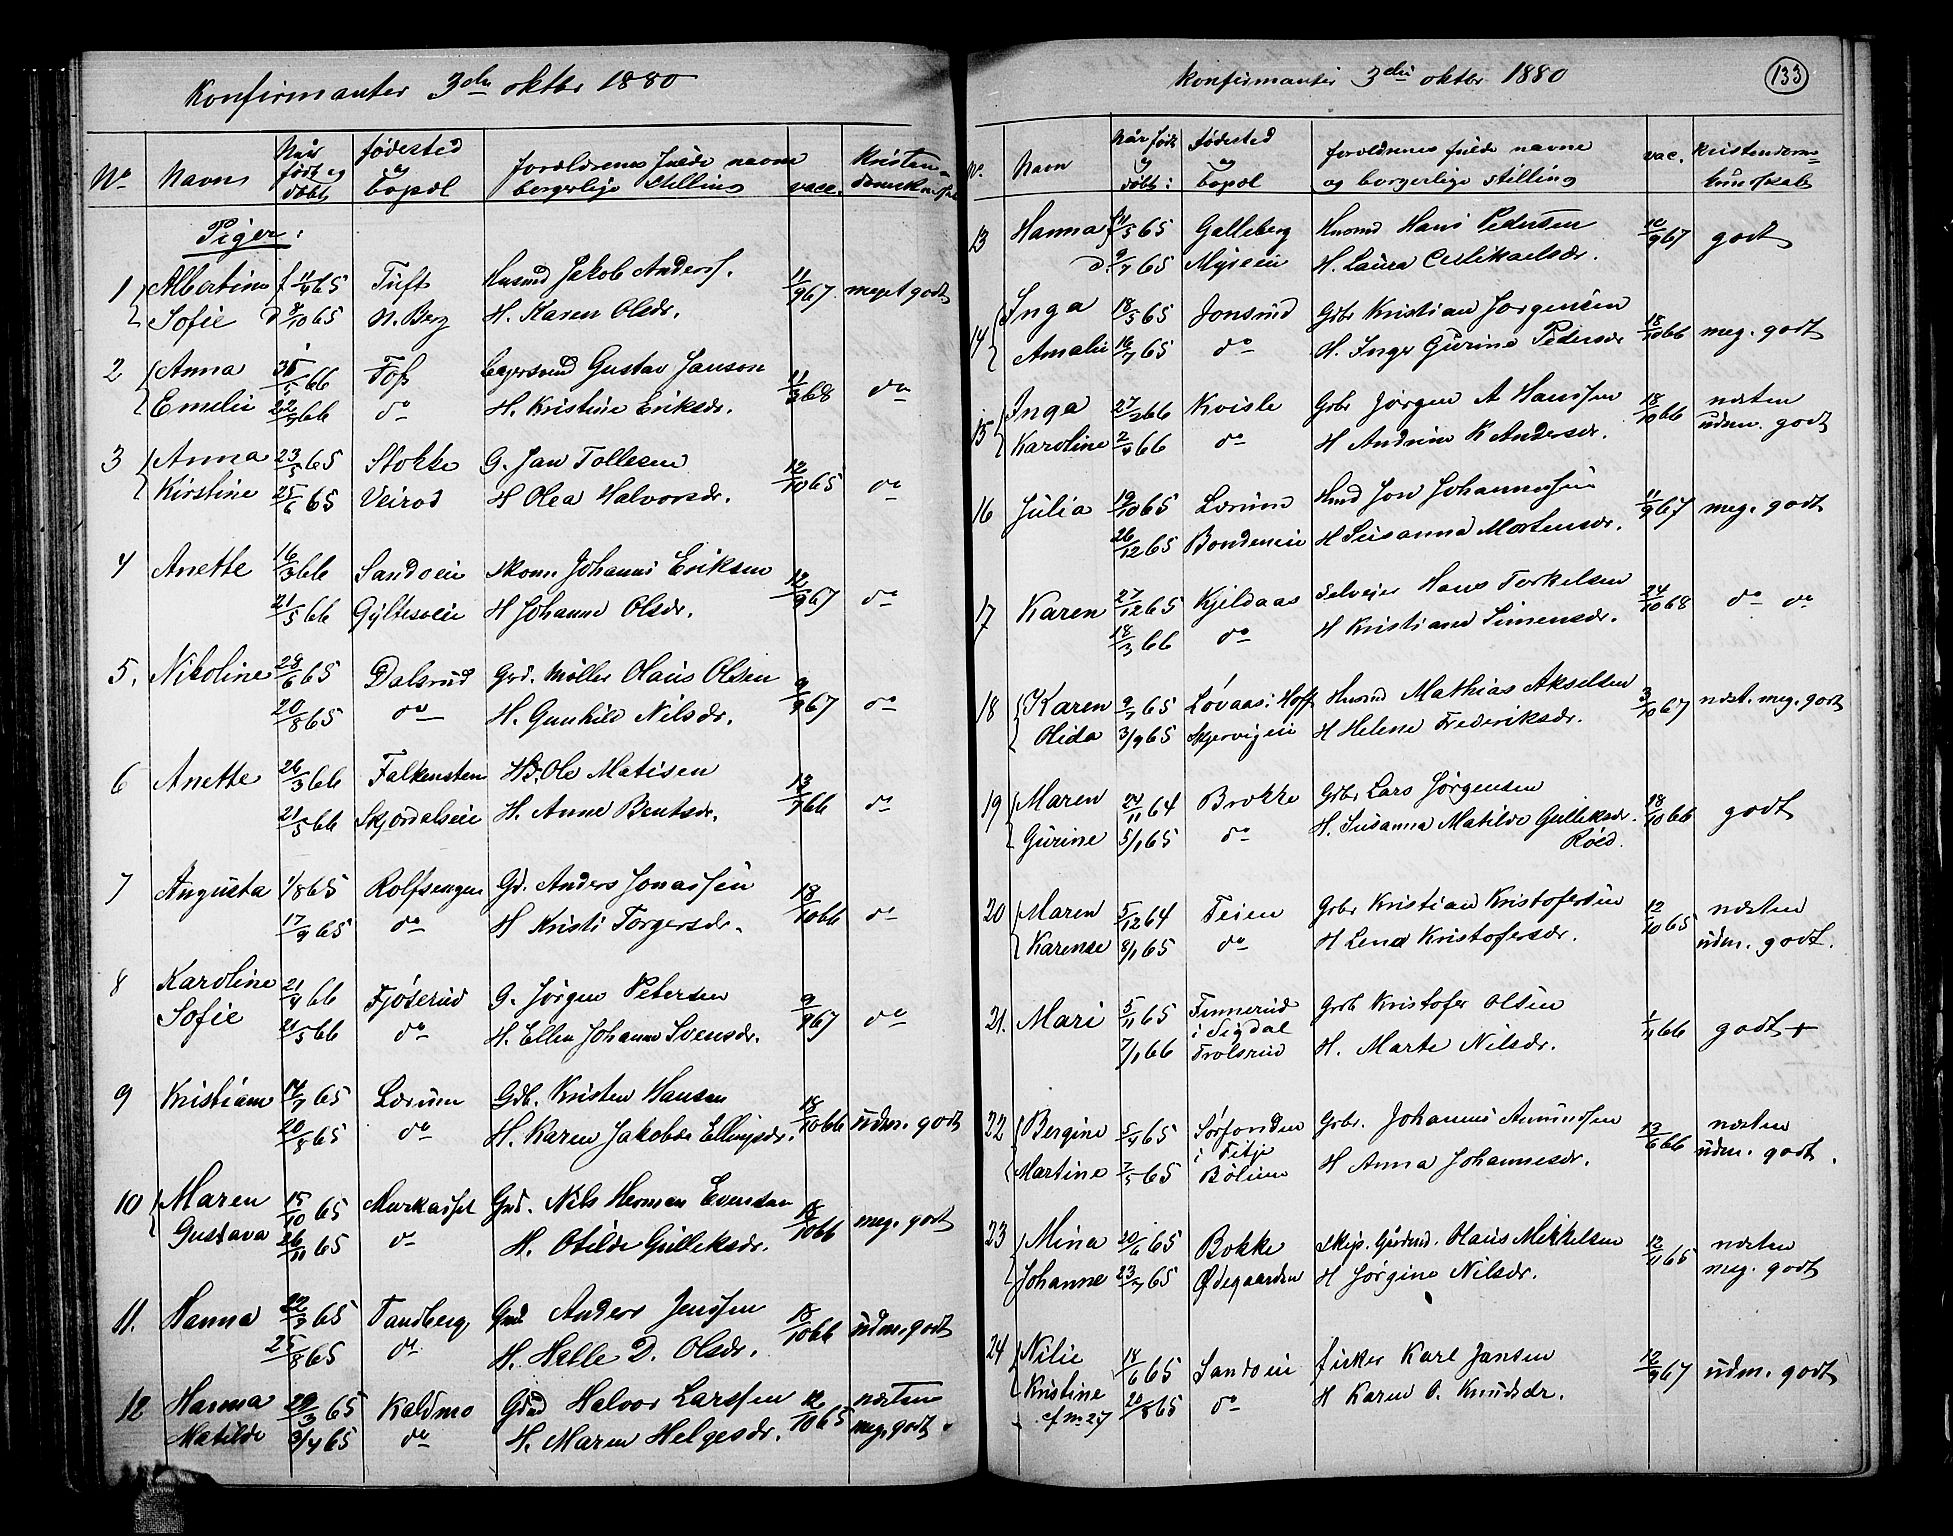 Konfirmanter 3die oktbr 1880
No Navn Når født og døbt fødested og bopæl forældrenes fulde navne borgerlige stilling vacc. Kristen-
Piger:
1 Albertine f 11/4 65 Tuft Husmd Jakob Anders.
Sofie d 8/10 65 N. Berg H. Karen Olsdr. 11/9 67 meget godt
2 Anna 66 Foss Gustav Janson
Emelie 66 do H. Kristine Eriksdr. 11/3 68 do
3 Anna 23/5 65 Stokke G. Jan Tollesen
Kirstine 25/6 65 Veirød H Olea Halvorsdr. 12/10 65 do
4 Anette 16/3 66 Sandveie Skom. Johanns Eriksen
21/5 66 H Johanne Olsdr. 12/9 67 do
5. Nikoline 28/6 65 Dalsrud Grd. Møller Olaus Olsen
20/8 65 do H. Gunhild Nilsdr. 9/9 67 do
6 Anette 26/3 66 Falkensten Ole Matisen
21/5 66 Skjørdalseie H. Anne Bentsdr. 13/ 66 do
7 Augusta 1/8 65 Rolfsengen Gd. Anders Jonassen
17/9 65 do H Kristi Torgersdr. 18/10 66 do
8 Karoline 21/4 66 Fjøserud G. Jørgen Petersen
Sofie 21/5 66 do H. Ellen Johanne Svensdr. 9/9 67 do
9 Kristiane 14/7 65 Lærum Gdb. Kristen Hansen
20/8 65 do H. Karen Jakobse Ellingsdr. 18/10 66 udm. godt
10 Maren 15/10 65 Gmd. Nils Herman Evensen
Gustava 26/11 65 do H. Otilde Gulliksdr. 18/10 66 meg. godt
11. Hanna 22/7 65 Tandberg Gmd Anders Jenssen
25/8 65 do H. Helle D. Olsdr. 18/10 66 udm. godt
12 Hanna 65 Kaldmo Halvor Larssen næsten
Matilde 3/4 65 do H. Maren Helgesdr. 12/10 65 meg. godt
Konfirmanter 3die oktbr 1880 133
No. Navn Når født og døbt: Fødested og bopæl forældrenes fulde navne og borgerlige stilling vac. Kristendoms-kundskab
13 Hanna f 11/5 65 Galleberg Husmd Hans Pedersen
d. 9/7 65 Myreeie H. Laura 10/9 67 godt
14 Inga 18/5 65 Jonsrud Grbr Kristian Jørgensen
Amalie 16/7 65 do H. Inger Gurine Pedersdr 18/10 66 meg. godt
15 Inga 27/2 66 Kvisle Grbr Jørgen A Hanssen næsten
Karoline 2/4 66 do H Andrine K Andersdr. 18/10 66 udm. godt
16 Julia 19/10 65 Lærum Hmd Jon Johannessen
26/12 65 Bondeneie H Susanna Mortensdr. 11/9 67 meg. godt
17 Karen 27/12 65 Kjeldaas Selveier Hans Torkelsen
18/3 66 do H Kristiane Simensdr. 24/10 68 do do
18 Karen 9/7 65 Løvaas i Hoff Husmd Mathias Akselsen
Olida 3/9 65 Skjervigeie H Helene Frederiksdr. 3/10 67 næst. meg. godt
19 Maren 24/11 64 Brekke Grbr Lars Jørgensen
Gurine 5/1 65 do H. Susanna Matilde Gulliksdr. 18/10 66 godt
Røed.
20 Maren 5/12 64 Teien Grbr Kristian Kristofersen næsten
Karense 8/1 65 do H Lena Kristofersdr. 12/10 65 udm. godt.
21. Mari 5/11 65 Finnerud Grb Kristofer Olsen
i Sigdal
7/1 66 Trolsrud H. Marte Nilsdr. 1/11 66 godt +
22 Bergine 5/4 65 Sørfonden Grbr. Johannes Amundsen næsten
i Titje
Martine 7/5 65 Bølum H Anna Johannesdr. 13/6 66 udm. godt.
23 Mina 20/6 65 Bokke Olaus Mikkelsen næsten
Johanne 23/7 65 Ødegaarden H Jørgine Nilsdr. 12/11 65 meg. godt
24 Nilie 18/6 65 Sandveie fisker Karl Jansen
Kristine 20/8 65 do H Karen O. Knudsdr. 12/9 67 udm. godt
cf no 27